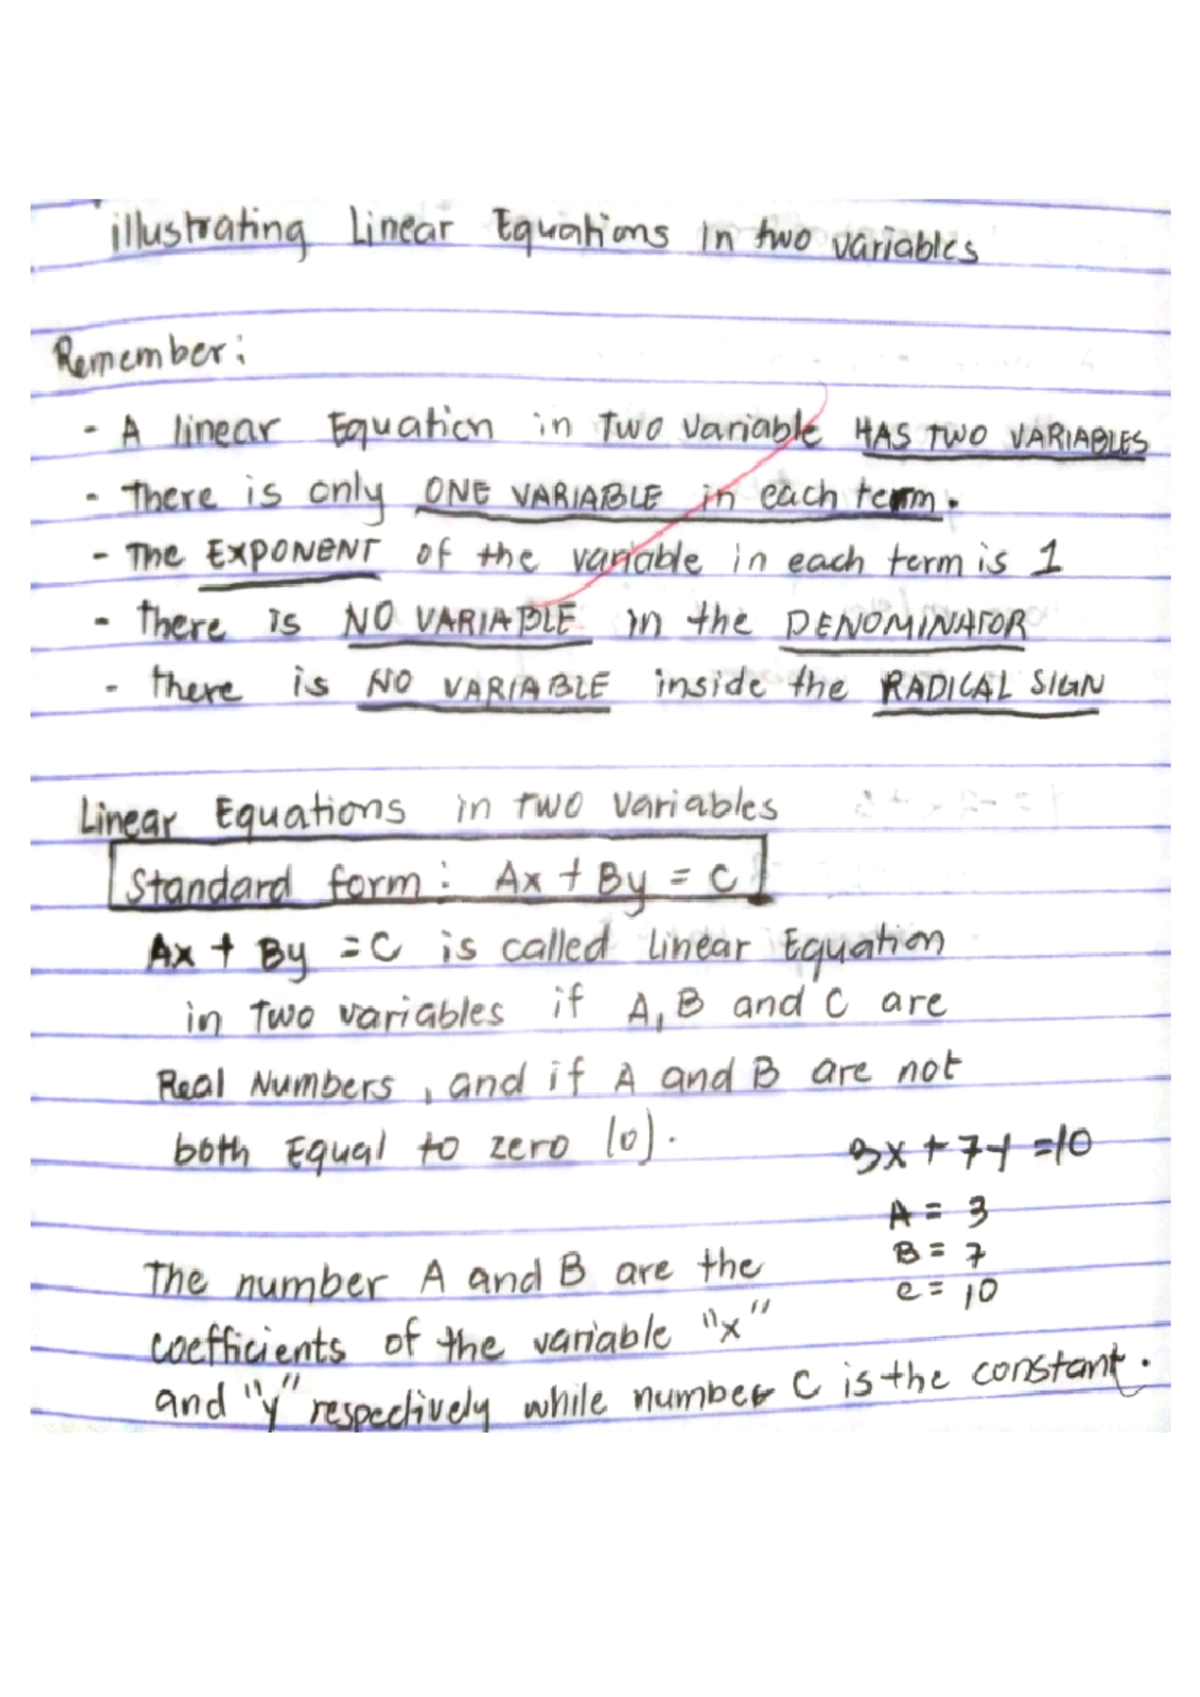 illustrating Linear Equations in two variables
Remember:
- A linear Equation in Two Variable HAS TWO VARIABLES
- There is only ONE VARIABLE in each term.
- The EXPONENT of the variable in each term is 1
- There is NO VARIABLE in the DENOMINATOR
- there is NO VARIABLE inside the RADICAL SIGN
Linear Equations in two Variables
Standard form: Ax + By = C
Ax + By = C is called Linear Equation
in Two variables if A, B and C are
Real Numbers, and if A and B are not
both Equal to zero (0).
3x + 7y = 10
A = 3
B = 7
C = 10
The number A and B are the
coefficients of the variable "x"
and "y" respectively while number C is the constant.